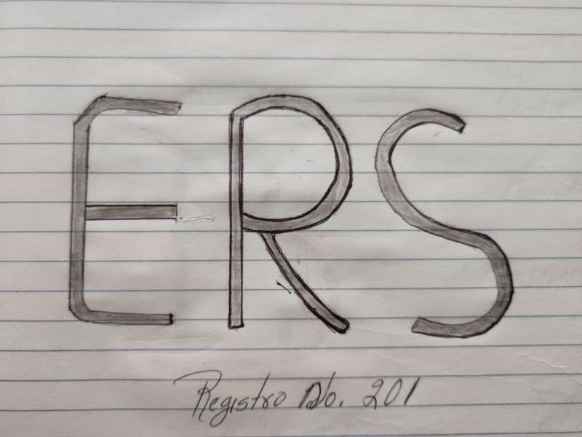 ERS
Registro No. 201